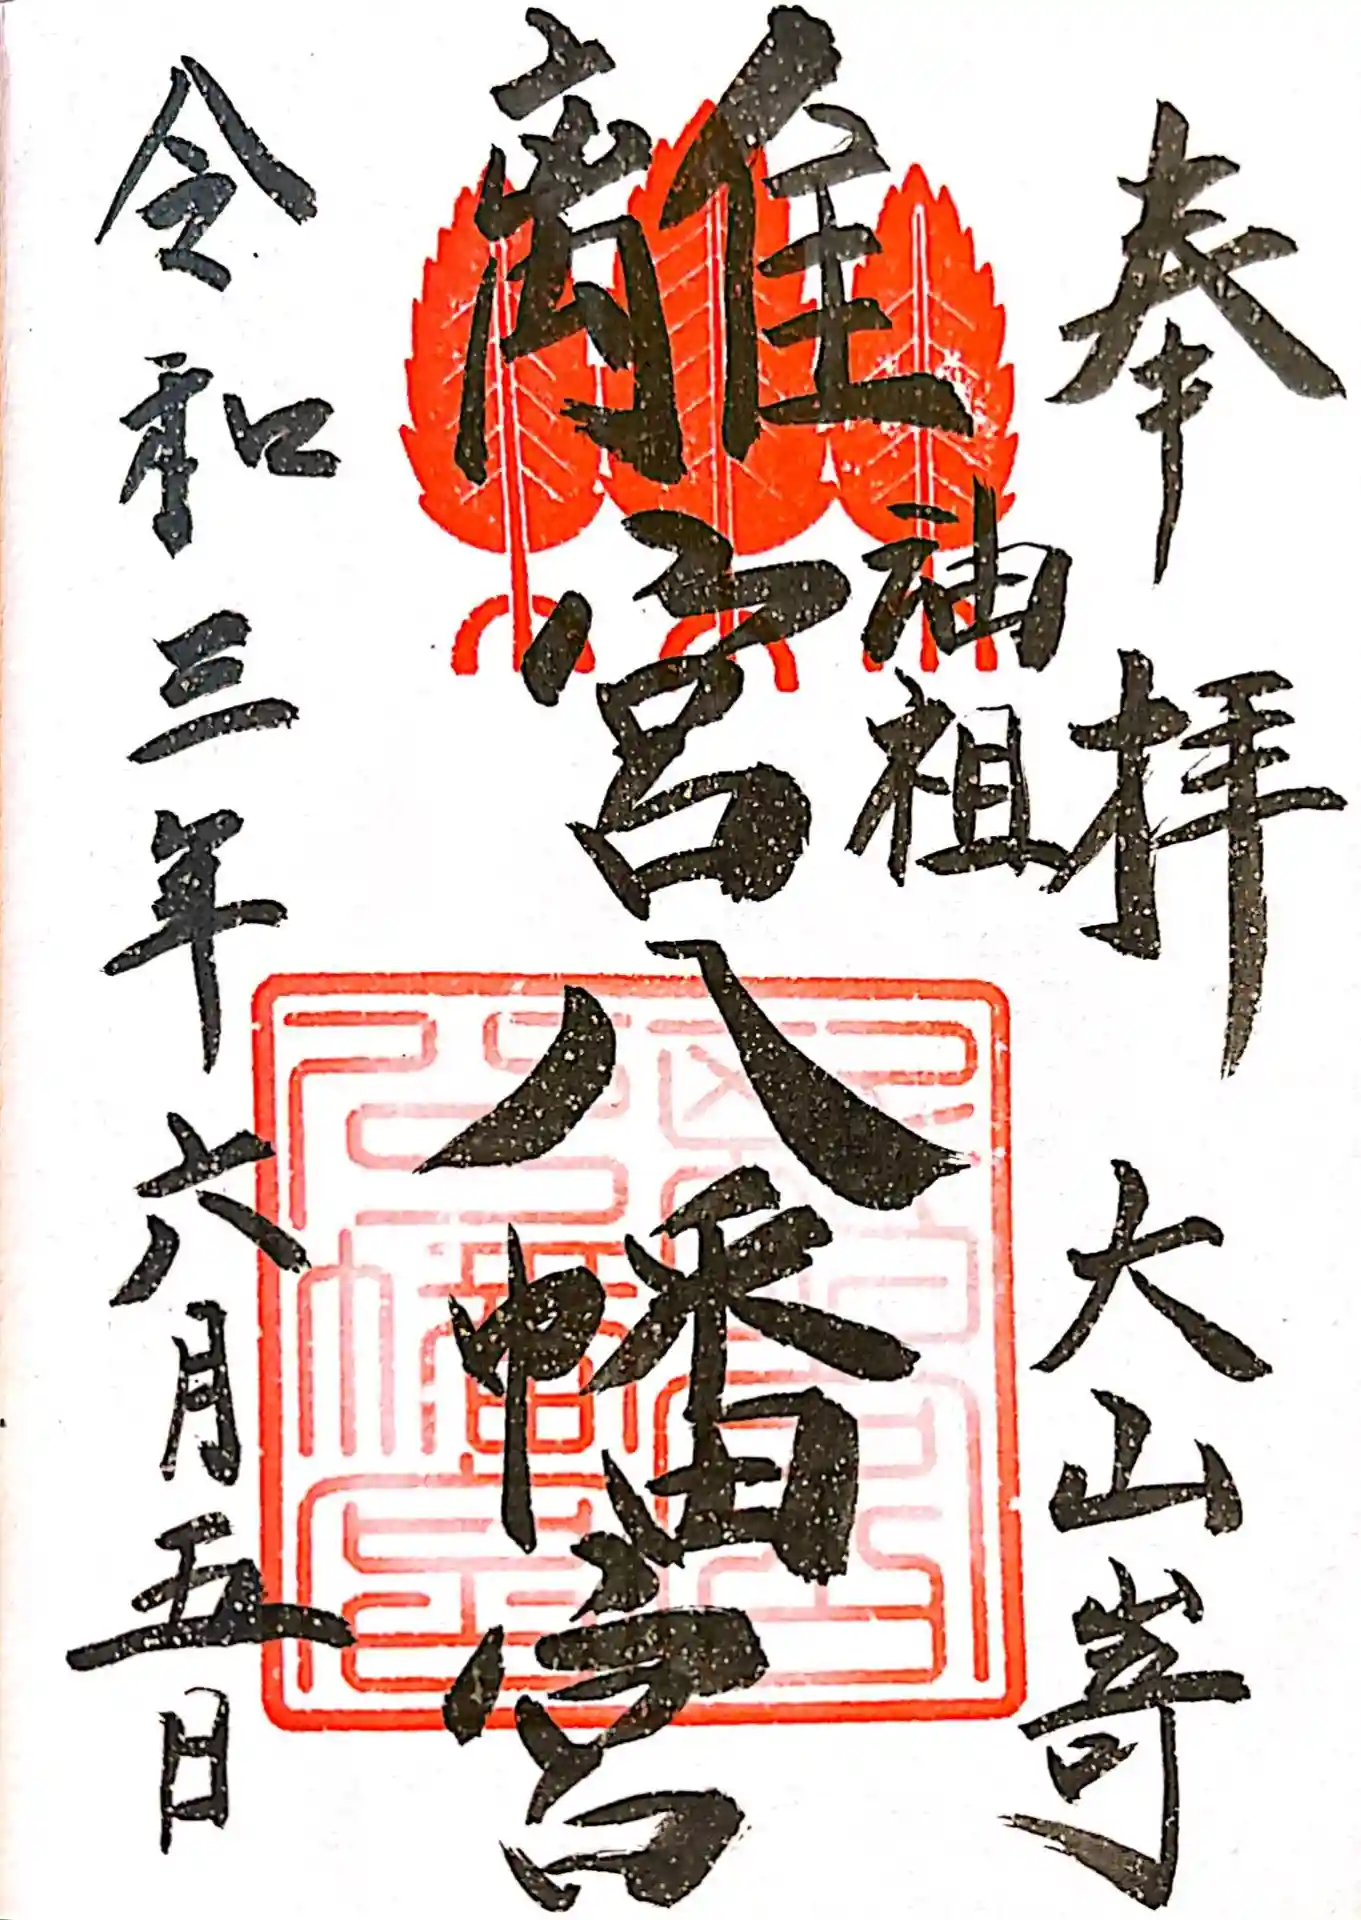 奉拝 大山嵜
油祖
離宮八幡宮
令和三年六月五日